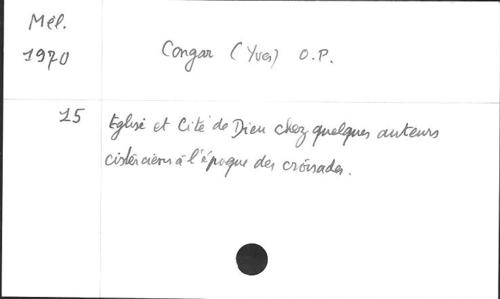 Mél.
1970
Congar (Yves) O.P.
15
Eglise et Cité de Dieu chez quelques auteurs
cisterciens à l'époque des croisades.